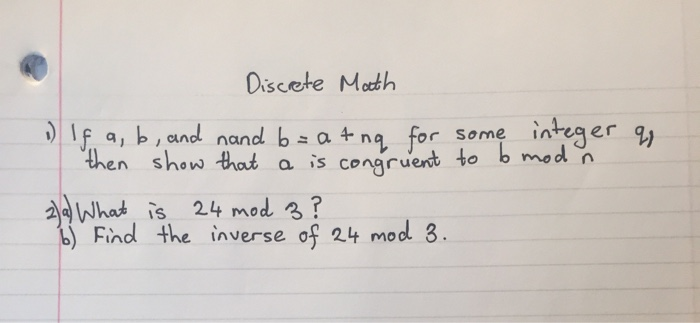 Discrete Math
1) If a, b, and nand b = a + nq for some integer q,
then show that a is congruent to b mod n
2) a) What is 24 mod 3?
b) Find the inverse of 24 mod 3.